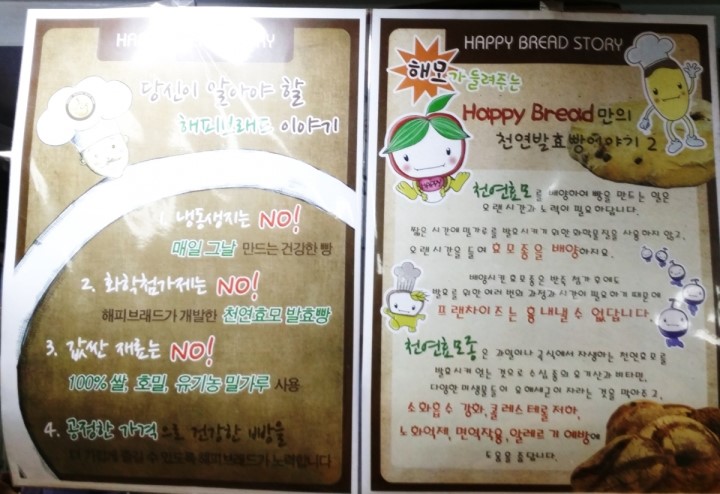 HAPPY BREAD STORY
당신이 알아야 할
해피브래드 이야기
1. 냉동생지는 NO!
매일 그날 만드는 건강한 빵
2. 화학첨가제는 NO!
해피브래드가 개발한 천연효모 발효빵
3. 값싼 재료는 NO!
100% 쌀, 호밀, 유기농 밀가루 사용
4. 공정한 가격으로 건강한 빵을
더 가깝게 즐길 수 있도록 해피브래드가 노력합니다
HAPPY BREAD STORY
해모가 들려주는
Happy Bread만의
천연발효빵이야기 2
천연효모를 배양하여 빵을 만드는 일은
오랜시간과 노력이 필요하답니다.
짧은 시간에 밀가루를 발효시키기 위한 화학물질을 사용하지 않고,
오랜시간을 들여 효모종을 배양하지요.
배양시킨 효모종은 반죽 첨가 후에도
발효를 위한 여러 번의 과정과 시간이 필요하기 때문에
프랜차이즈는 흉내낼 수 없답니다.
천연효모종은 과일이나 곡식에서 자생하는 천연효모를
발효시켜 얻는 것으로 수십 종의 유기산과 비타민,
다양한 미생물들이 유해세균이 자라는 것을 막아주고,
소화흡수 강화, 콜레스테롤저하,
노화억제, 면역작용, 알레르기 예방에
도움을 줍답니다.